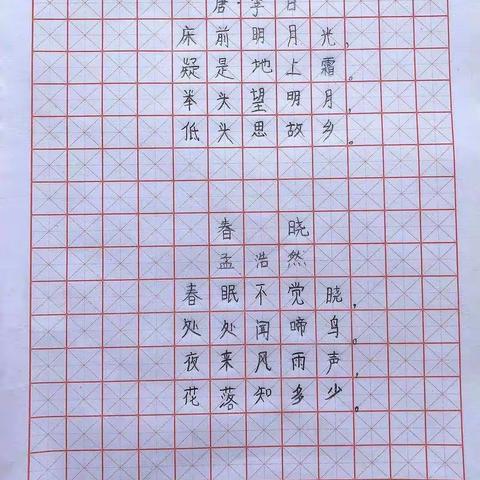 唐·李白
床前明月光，
疑是地上霜。
举头望明月，
低头思故乡。
春晓
孟浩然
春眠不觉晓，
处处闻啼鸟。
夜来风雨声，
花落知多少。